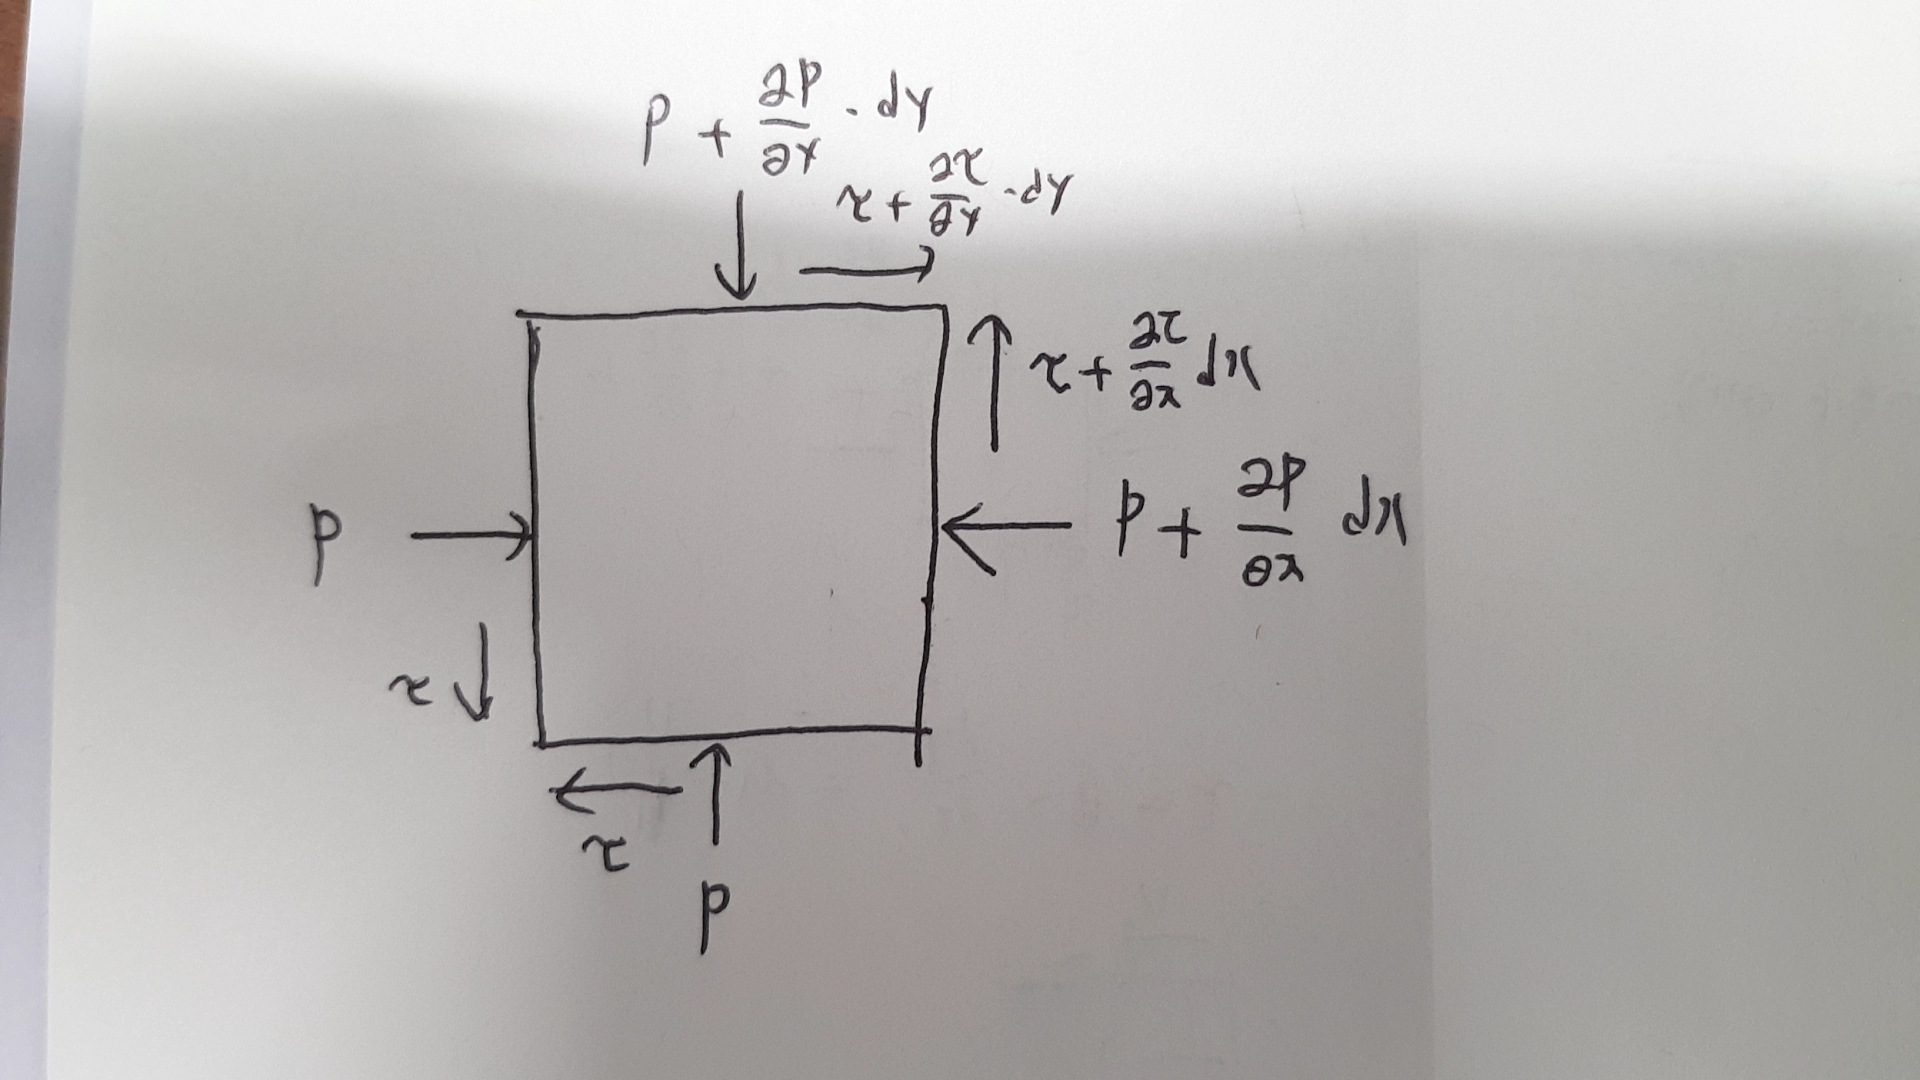 P + ∂P/∂y · dy
τ + ∂τ/∂y · dy
τ + ∂τ/∂x dx
P
P + ∂P/∂x dx
τ
τ
P